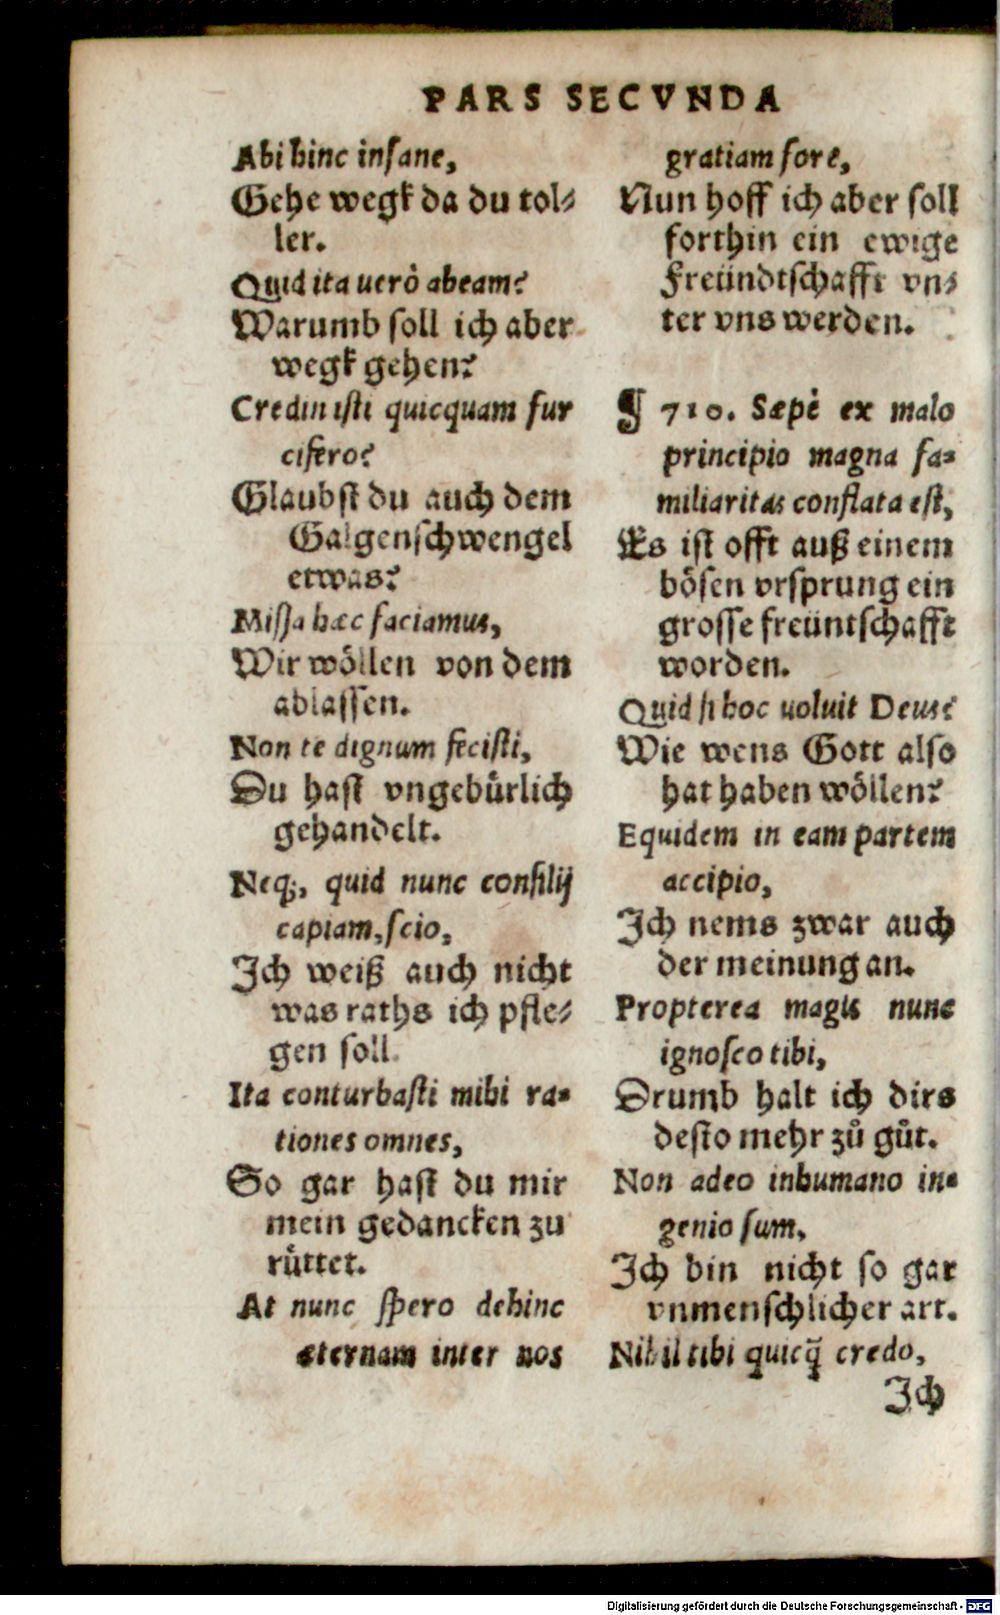 PARS SECVNDA
Abi hinc insane,
Gehe wegk da du tol⸗
ler.
Quid ita uerò abeam?
Warumb soll ich aber
wegk gehen?
Credin isti quicquam fur
cifero?
Glaubst du auch dem
Galgenschwengel
etwas?
Missa hæc faciamus,
Wir wöllen von dem
ablassen.
Non te dignum fecisti,
Du hast vngebürlich
gehandelt.
Neq;, quid nunc consilij
capiam, scio,
Ich weiß auch nicht
was raths ich pfle⸗
gen soll.
Ita conturbasti mihi ra-
tiones omnes,
So gar hast du mir
mein gedancken zu
rüttet.
At nunc spero dehinc
æternam inter nos
gratiam fore,
Nun hoff ich aber soll
forthin ein ewige
Freündtschafft vn⸗
ter vns werden.
¶ 710. Sæpè ex malo
principio magna fa-
miliaritas conflata est,
Es ist offt auß einem
bösen vrsprung ein
grosse freüntschafft
worden.
Quid si hoc uoluit Deus?
Wie wens Gott also
hat haben wöllen?
Equidem in eam partem
accipio,
Ich nems zwar auch
der meinung an.
Propterea magis nunc
ignosco tibi,
Drumb halt ich dirs
desto mehr zů gůt.
Non adeo inhumano in-
genio sum,
Ich bin nicht so gar
vnmenschlicher art.
Nihil tibi quicq̃ credo,
Ich
Digitalisierung gefördert durch die Deutsche Forschungsgemeinschaft - DFG